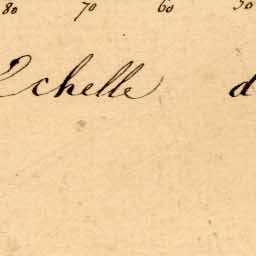 80 70 60 50
Echelle d